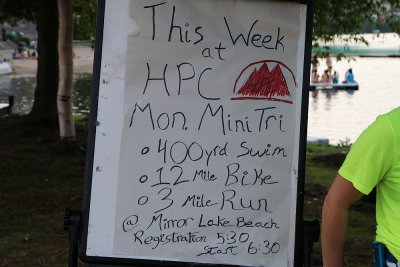 This Week
at
HPC
Mon. Mini Tri
400yrd Swim
12 Mile Bike
3 Mile Run
@ Mirror Lake Beach
Registration 5:30
Start 6:30